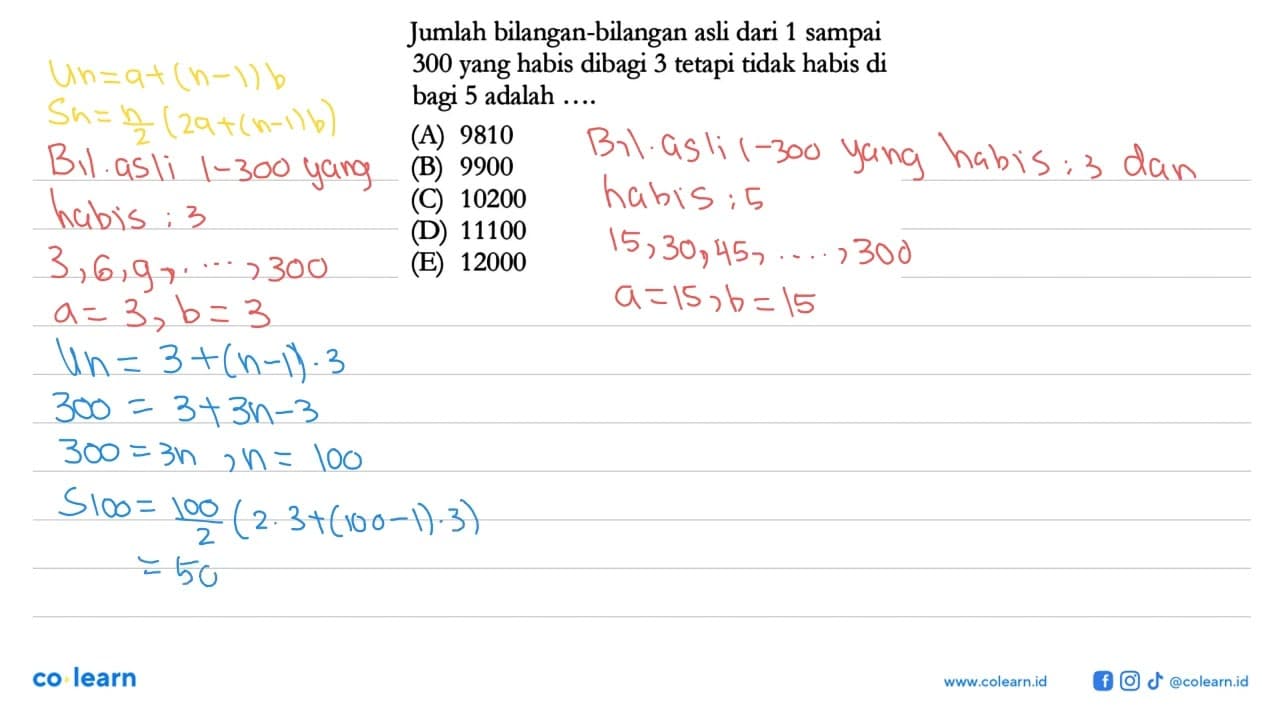 Jumlah bilangan-bilangan asli dari 1 sampai
300 yang habis dibagi 3 tetapi tidak habis di
bagi 5 adalah ....
(A) 9810
(B) 9900
(C) 10200
(D) 11100
(E) 12000
Un=a+(n-1)b
Sn=n/2(2a+(n-1)b)
Bil.asli 1-300 yang
habis : 3
3,6,9,....,300
a=3,b=3
Un=3+(n-1).3
300=3+3n-3
300=3n,n=100
S100=100/2(2.3+(100-1).3)
=50
Bil.asli 1-300 yang habis : 3 dan
habis : 5
15,30,45,....,300
a=15,b=15
co learn
www.colearn.id
@colearn.id